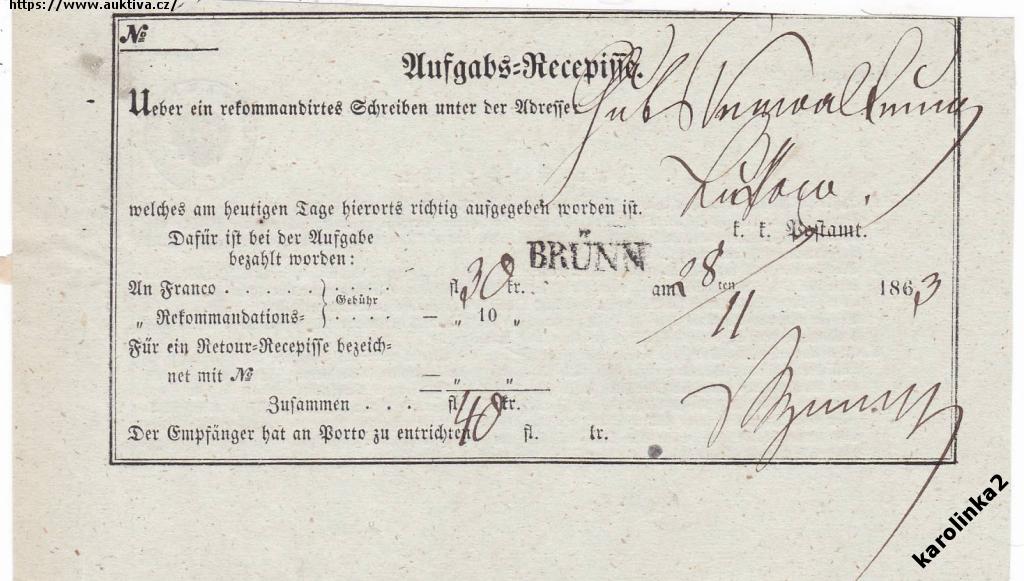 https://www.auktiva.cz/
№
Aufgabs-Recepisse.
Ueber ein rekommandirtes Schreiben unter der Adresse: Guts Verwaltung
welches am heutigen Tage hierorts richtig aufgegeben worden ist.
k. k. Postamt.
Dafür ist bei der Aufgabe
bezahlt worden:
BRÜNN
An Franco . . . . . . . Gebühr fl. 30 kr. am 28 ten 11 1863
„ Rekommandations- . . . . — „ 10 „
Für ein Retour-Recepisse bezeich-
net mit № — „ „
Zusammen . . . fl. 40 kr.
Der Empfänger hat an Porto zu entrichten fl. kr.
karolinka2